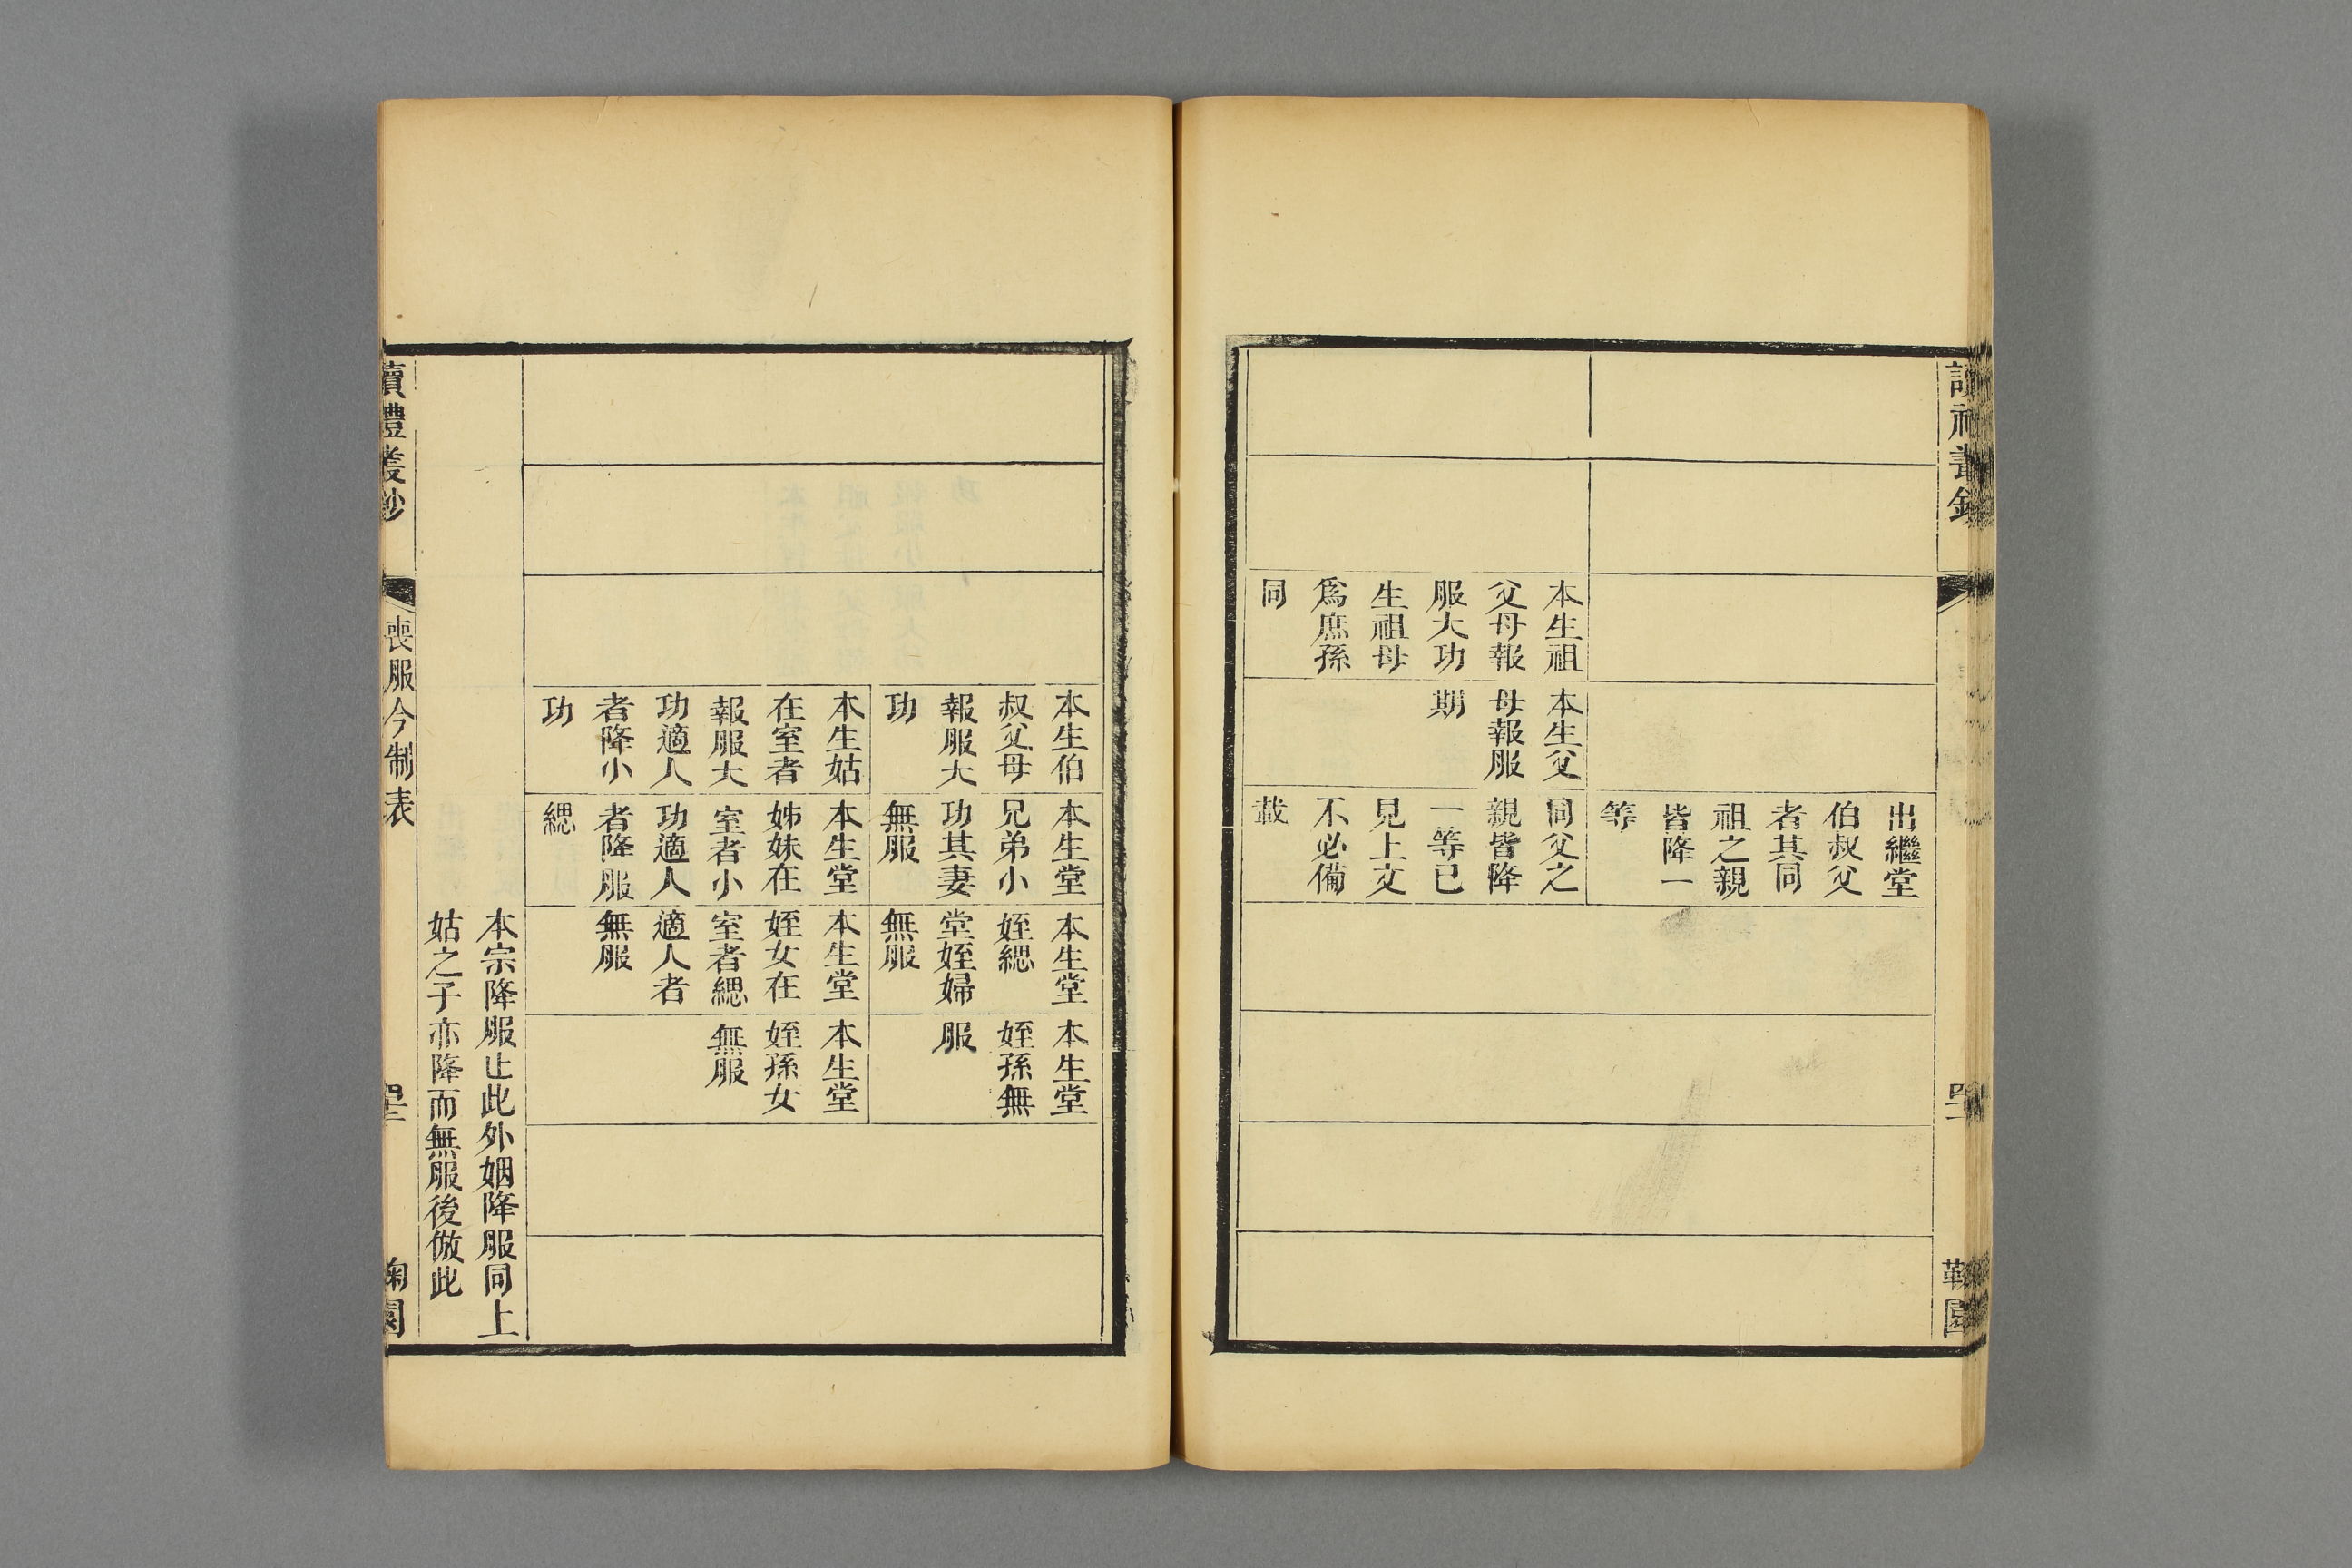 出繼堂
伯叔父
者其同
祖之親
皆降一
等
本生祖
父母報
服大功
生祖母
爲庶孫
同
本生父
母報服
期
同父之
親皆降
一等已
見上文
不必備
載
本生伯
叔父母
報服大
功
本生堂
兄弟小
功其妻
無服
本生堂
姪緦
堂姪婦
無服
本生堂
姪孫無
服
本生姑
在室者
報服大
功適人
者降小
功
本生堂
姊妹在
室者小
功適人
者降服
緦
本生堂
姪女在
室者緦
適人者
無服
本生堂
姪孫女
無服
本宗降服止此外姻降服同上
姑之子亦降而無服後倣此
讀禮叢鈔
喪服今制表
園